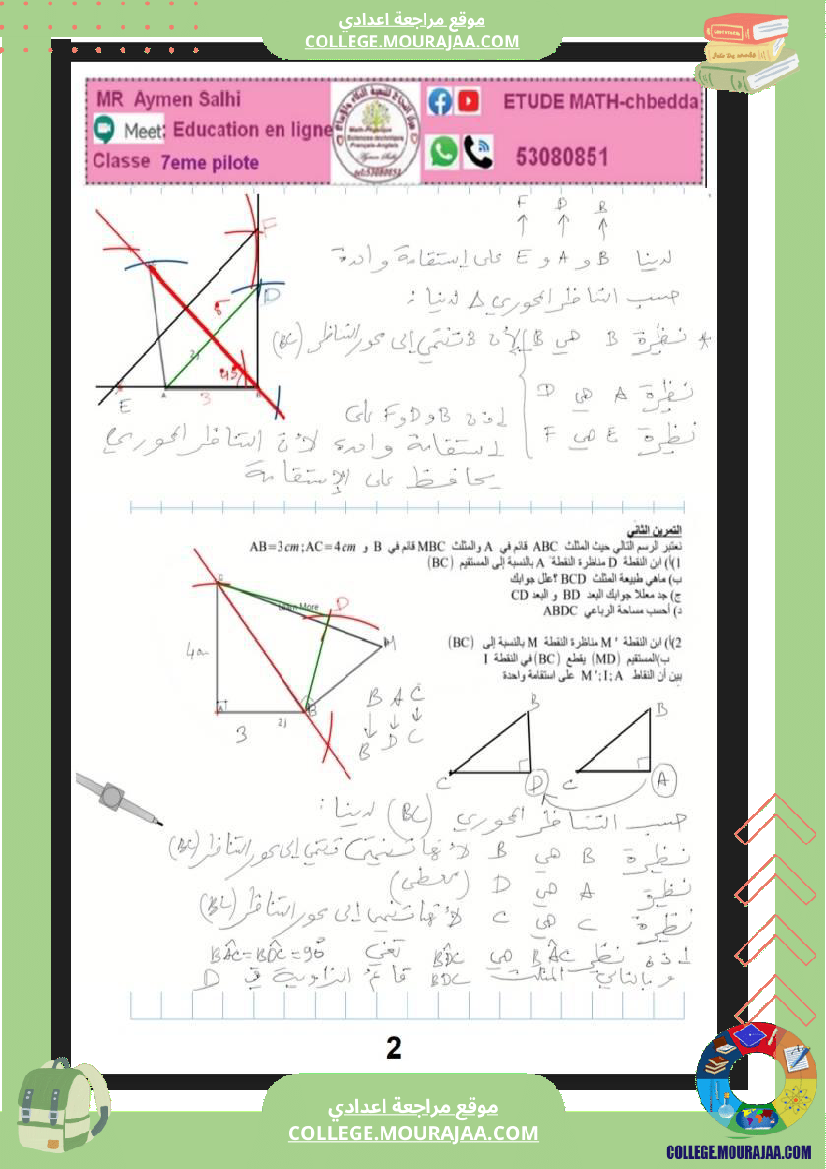 موقع مراجعة اعدادي
COLLEGE.MOURAJAA.COM
MR Aymen Salhi
Meet: Education en ligne
Classe 7eme pilote
ETUDE MATH-chbedda
53080851
F D B
لدينا B و A و E على إستقامة واحدة
حسب التناظر المحوري Δ لدينا :
* نظيرة B هي B لأن B تنتمي إلى محور التناظر (BC)
نظيرة A هي D
نظيرة E هي F
إذن B و D و F على
إستقامة واحدة لأن التناظر المحوري
يحافظ على الإستقامة
F
D
5
45
E
A
3
التمرين الثاني
نعتبر الرسم التالي حيث المثلث ABC قائم في A والمثلث MBC قائم في B و AB=3cm;AC=4cm
1)أ) ابن النقطة D مناظرة النقطة A بالنسبة إلى المستقيم (BC)
ب) ماهي طبيعة المثلث BCD ؟علل جوابك
ج) جد معللا جوابك البعد BD و البعد CD
د) أحسب مساحة الرباعي ABDC
2)أ) ابن النقطة M' مناظرة النقطة M بالنسبة إلى (BC)
ب)المستقيم (MD) يقطع (BC) في النقطة I
بين أن النقاط M';I;A على استقامة واحدة
C
Learn More
D
M
4cm
A
B
3
B A C
B D C
B
C
D
B
C
A
حسب التناظر المحوري (BC) لدينا :
نظيرة B هي B لأنها تنتمي إلى محور التناظر (BC)
نظيرة A هي D (معطى)
نظيرة C هي C لأنها تنتمي إلى محور التناظر (BC)
إذن نظير BÂC هي BD̂C تعني BÂC=BD̂C=90°
و بالتالي المثلث BDC قائم الزاوية في D
2
موقع مراجعة اعدادي
COLLEGE.MOURAJAA.COM
COLLEGE.MOURAJAA.COM